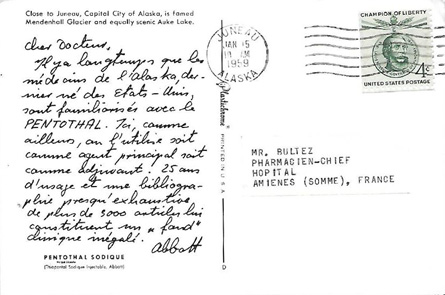 Close to Juneau, Capital City of Alaska, is famed
Mendenhall Glacier and equally scenic Auke Lake.
Cher Docteur,
Il y a longtemps que les
médecins de l'Alaska, der-
nier né des Etats-Unis,
sont familiarisés avec le
PENTOTHAL. Ici, comme
ailleurs, on l'utilise soit
comme agent principal soit
comme adjuvant. 25 ans
d'usage et une bibliogra-
phie presqu'exhaustive
de plus de 3000 articles lui
constituent un "fond"
clinique inégalé.
Abbott
PENTOTHAL SODIQUE
(Thiopental Sodique Injectable, Abbott)
Plastichrome
PRINTED IN U.S.A.
D
JUNEAU
JAN 15
1959
ALASKA
CHAMPION OF LIBERTY
4¢
UNITED STATES POSTAGE
MR. BULTEZ
PHARMACIEN-CHIEF
HOPITAL
AMIENES (SOMME), FRANCE